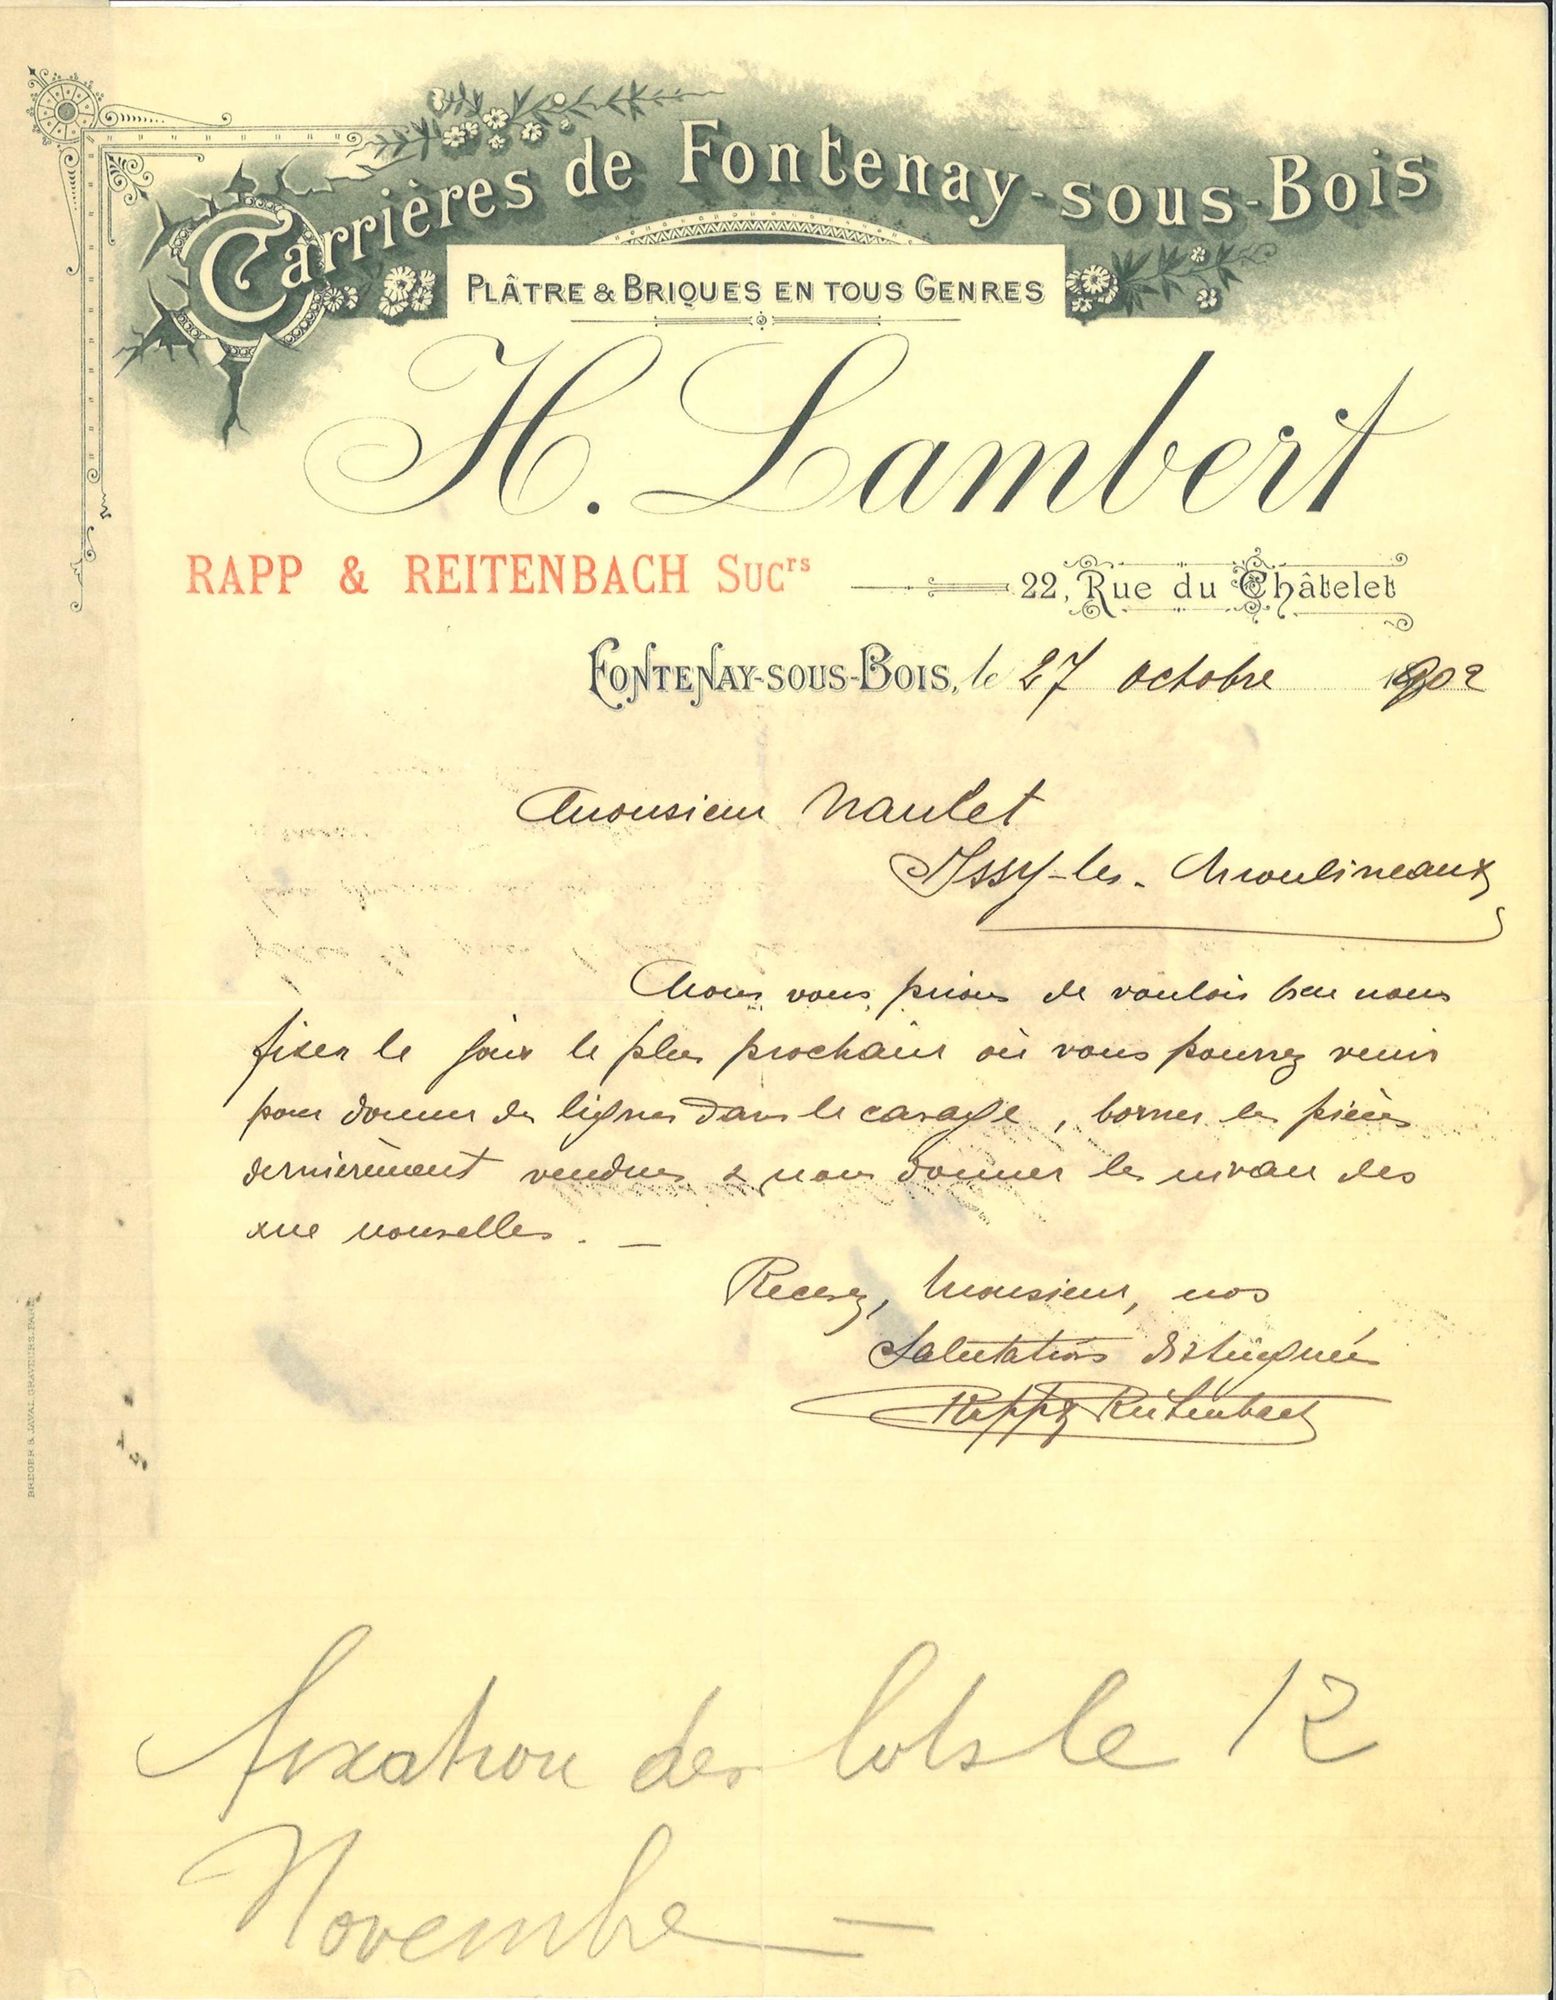 Carrières de Fontenay-sous-Bois
PLÂTRE & BRIQUES EN TOUS GENRES
H. Lambert
RAPP & REITENBACH SUCrs
22, Rue du Châtelet
FONTENAY-SOUS-BOIS, le 27 octobre 1902
Monsieur Naulet
Issy-les-Moulineaux
Nous vous prions de vouloir bien nous
fixer le jour le plus prochain où vous pourrez venir
pour donner des lignes dans le carage, borner les pièces
dernièrement vendues & nous donner les niveau des
rue nouvelles. —
Recevez, Monsieur, nos
Salutations distinguées
Rapp & Reitenbach
fixation des lots le 12
Novembre —
BREGER & JAVAL, GRAVEURS, PARIS